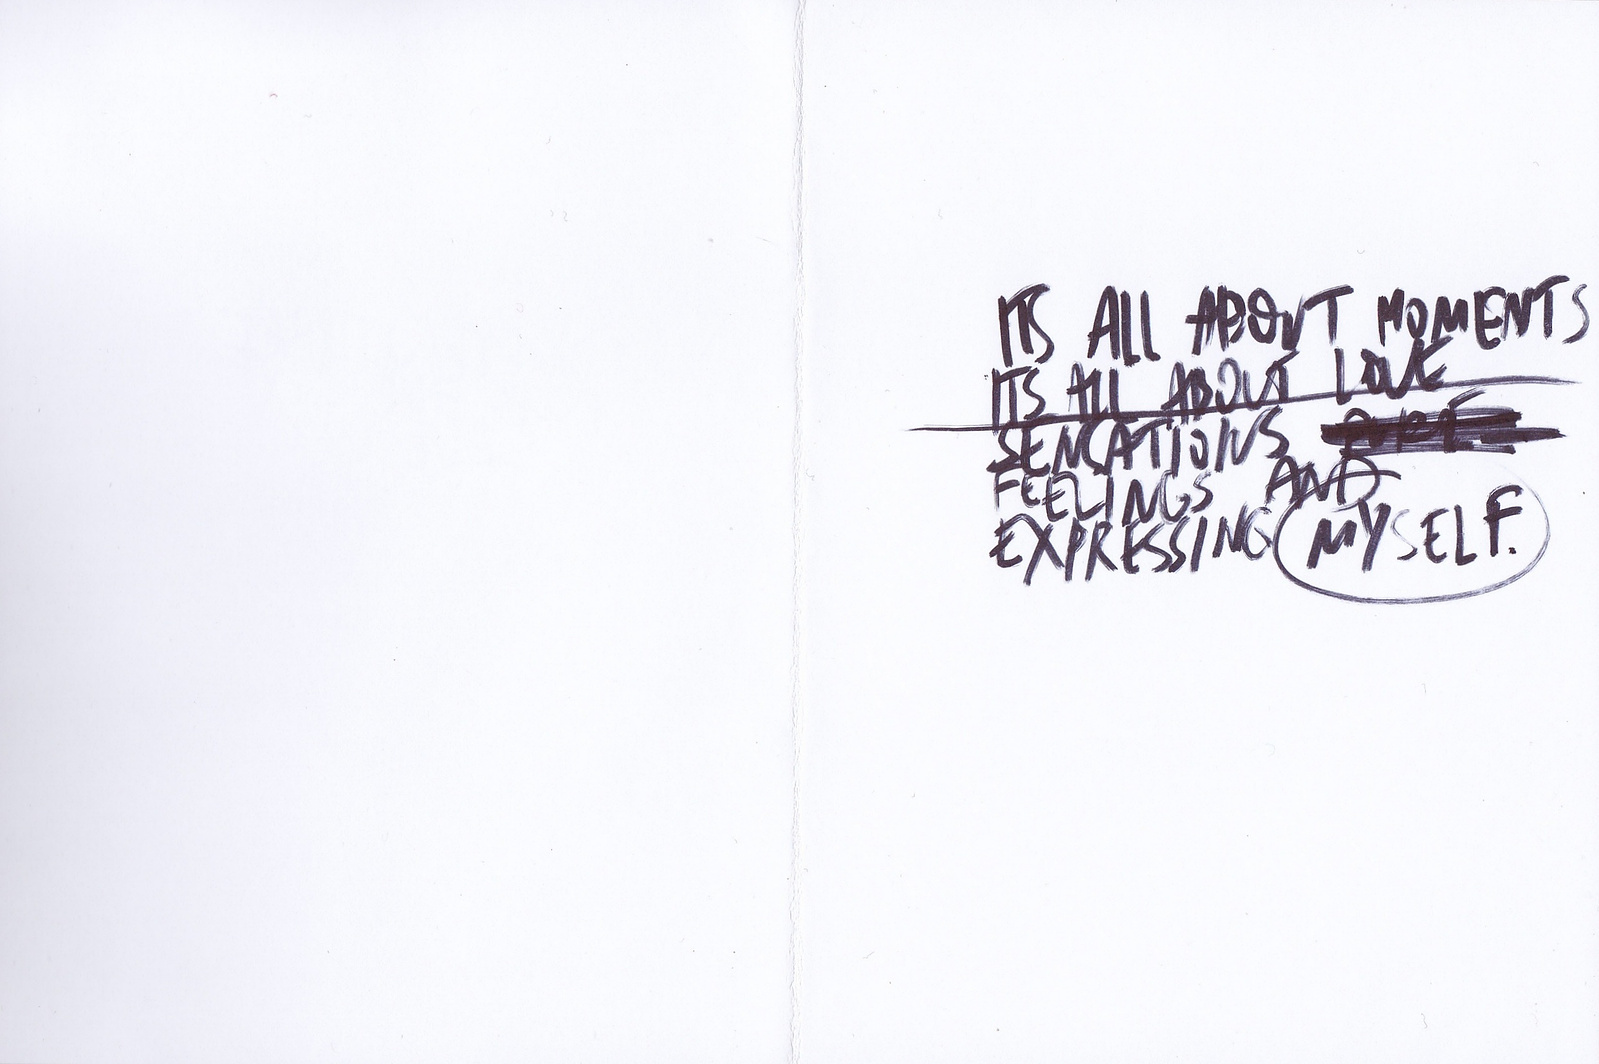 ITS ALL ABOUT MOMENTS
ITS ALL ABOUT LOVE
SENSATIONS
FEELINGS AND
EXPRESSING MYSELF.